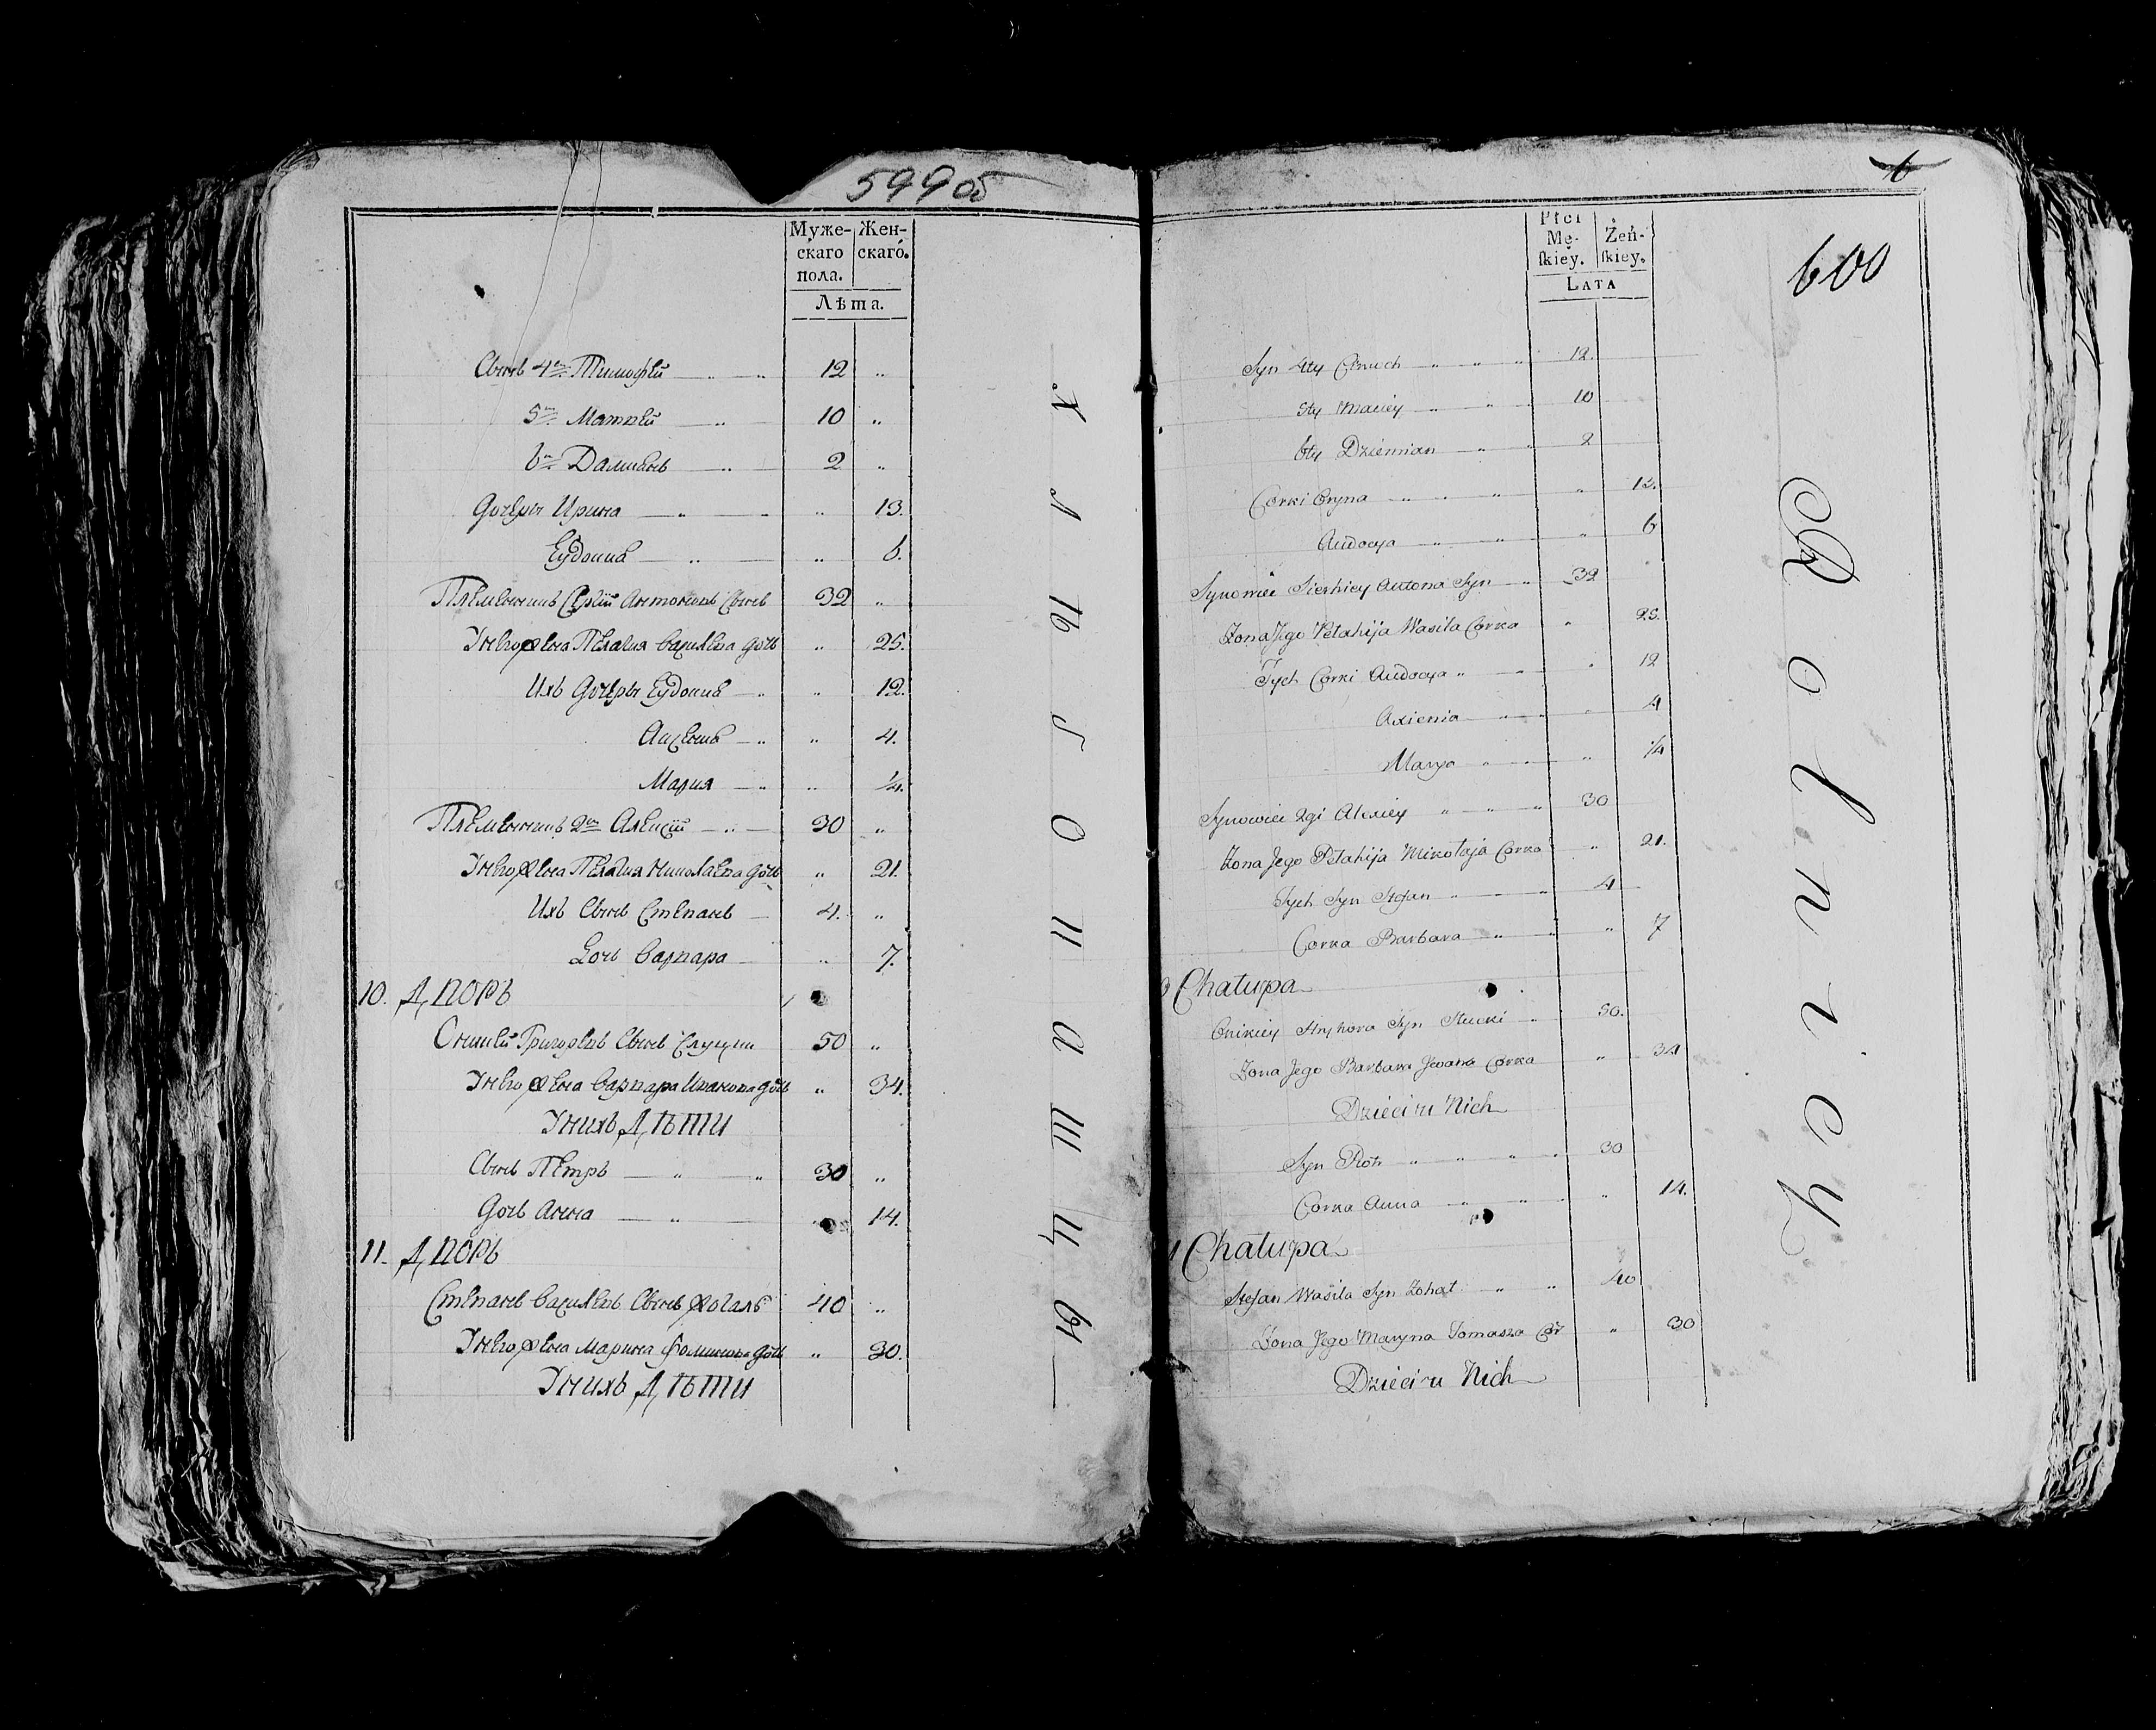 599 об
Муже-
скаго
пола.
Жен-
скаго.
Лѣта.
Сынъ 4й Тимофѣй 12 "
5й Матвѣй 10 "
6й Дамиянъ 2 "
Дочери Ирина " 13.
Еудокия " 6.
Племянникъ Сергій Антоновъ Сынъ 32 "
У него жена Пелагия Василева дочь " 25.
Ихъ дочери Еудокия " 12.
Аксения " 4.
Мария " 1/4.
Племянникъ 2й Алексій 30 "
У него жена Пелагия Николаева дочь " 21.
Ихъ Сынъ Степанъ 4. "
Дочь Варвара " 7.
10. ДВОРЪ
Оникий Григорьевъ Сынъ 50 "
У него жена Варвара Иванова дочь " 34.
У нихъ ДѢТИ
Сынъ Петръ 30 "
Дочь Анна " 14.
11. ДВОРЪ
Степанъ Василевъ Сынъ 40 "
У него жена Марина дочь " 30.
У нихъ ДѢТИ
Х л ѣ б о п а ш ц ы
6
600
Płci
Mę-
skiey.
Żeń-
skiey.
LATA
Syn 4ty 12.
5ty Maciey 10
6ty Dziemian 2
Corki Oryna " 13.
Audocya " 6
Synowiec Sierhiey Antona Syn 32
Żona Jego Pełahija Wasila Corka " 25.
Tych Corki Audocya " 12
Axienia " 4
Marya " 1/4
Synowiec 2gi Alexiey 30
Żona Jego Pełahija Mikołaja Corka " 21.
Tych Syn Stefan 4
Corka Barbara " 7
Chałupa
Onikiey Hryhora Syn 50.
Żona Jego Barbara Jwana Corka " 34
Dzieci u Nich
Syn Piotr 30
Corka Anna " 14.
Chałupa
Stefan Wasila Syn 40
Żona Jego Maryna Tomasza Cor " 30
Dzieci u Nich
R o l n i c y